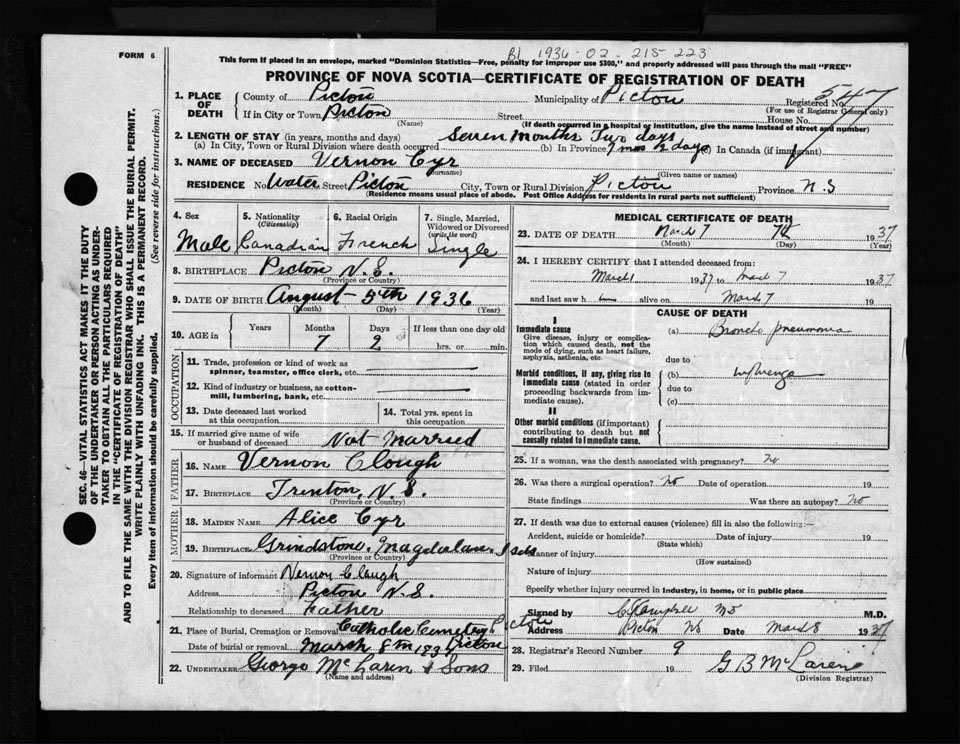 FORM 6
Bl 1936-02-215 223
This form If placed in an envelope, marked "Dominion Statistics—Free, penalty for improper use $300," and properly addressed will pass through the mail "FREE"
PROVINCE OF NOVA SCOTIA—CERTIFICATE OF REGISTRATION OF DEATH
1. PLACE OF DEATH
County of Pictou Municipality of Pictou Registered No. 547
(For use of Registrar General only)
If in City or Town Pictou Street House No.
(Name) (If death occurred in a hospital or institution, give the name instead of street and number)
2. LENGTH OF STAY (in years, months and days) Seven Months Two days
(a) In City, Town or Rural Division where death occurred (b) In Province 7 mos 2 days (c) In Canada (if immigrant)
3. NAME OF DECEASED Vernon Cyr
(Surname) (Given name or names)
RESIDENCE No. Water Street Pictou City, Town or Rural Division Pictou Province N.S
(Residence means usual place of abode. Post Office Address for residents in rural parts not sufficient)
4. Sex Male
5. Nationality (Citizenship) Canadian
6. Racial Origin French
7. Single, Married, Widowed or Divorced (write the word) Single
8. BIRTHPLACE Pictou N.S.
(Province or Country)
9. DATE OF BIRTH August 5th 1936
(Month) (Day) (Year)
10. AGE in Years Months 7 Days 2 If less than one day old hrs. or min.
OCCUPATION
11. Trade, profession or kind of work as spinner, teamster, office clerk, etc.
12. Kind of industry or business, as cotton-mill, lumbering, bank, etc.
13. Date deceased last worked at this occupation
14. Total yrs. spent in this occupation
15. If married give name of wife or husband of deceased Not Married
FATHER
16. NAME Vernon Clough
17. BIRTHPLACE Trenton, N.S.
(Province or Country)
MOTHER
18. MAIDEN NAME Alice Cyr
19. BIRTHPLACE Grindstone, Magdalene Isds
(Province or Country)
20. Signature of informant Vernon Clough
Address Pictou N.S.
Relationship to deceased Father
21. Place of Burial, Cremation or Removal Catholic Cemetery Pictou
Date of burial or removal March 8th 1937 Pictou
22. UNDERTAKER George McLaren & Sons
(Name and address)
MEDICAL CERTIFICATE OF DEATH
23. DATE OF DEATH March 7 7th 1937
(Month) (Day) (Year)
24. I HEREBY CERTIFY that I attended deceased from:
March 1 1937 to March 7 1937
and last saw h im alive on March 7 19
CAUSE OF DEATH
I
Immediate cause
Give disease, injury or complication which caused death, not the mode of dying, such as heart failure, asphyxia, asthenia, etc.
(a) Broncho pneumonia
due to
Morbid conditions, if any, giving rise to immediate cause (stated in order proceeding backwards from immediate cause).
(b) influenza
due to
(c)
II
Other morbid conditions (if important) contributing to death but not causally related to immediate cause.
25. If a woman, was the death associated with pregnancy? no
26. Was there a surgical operation? No Date of operation 19
State findings Was there an autopsy? No
27. If death was due to external causes (violence) fill in also the following:—
Accident, suicide or homicide? Date of injury 19
(State which)
Manner of injury
(How sustained)
Nature of injury
Specify whether injury occurred in industry, in home, or in public place
Signed by M.D.
Address Pictou NS Date March 8 1937
28. Registrar's Record Number 9
29. Filed 19 G B McLaren
(Division Registrar)
SEC. 46—VITAL STATISTICS ACT MAKES IT THE DUTY
OF THE UNDERTAKER OR PERSON ACTING AS UNDER-
TAKER TO OBTAIN ALL THE PARTICULARS REQUIRED
IN THE "CERTIFICATE OF REGISTRATION OF DEATH"
AND TO FILE THE SAME WITH THE DIVISION REGISTRAR WHO SHALL ISSUE THE BURIAL PERMIT.
WRITE PLAINLY WITH UNFADING INK. THIS IS A PERMANENT RECORD.
Every item of information should be carefully supplied. (See reverse side for instructions.)